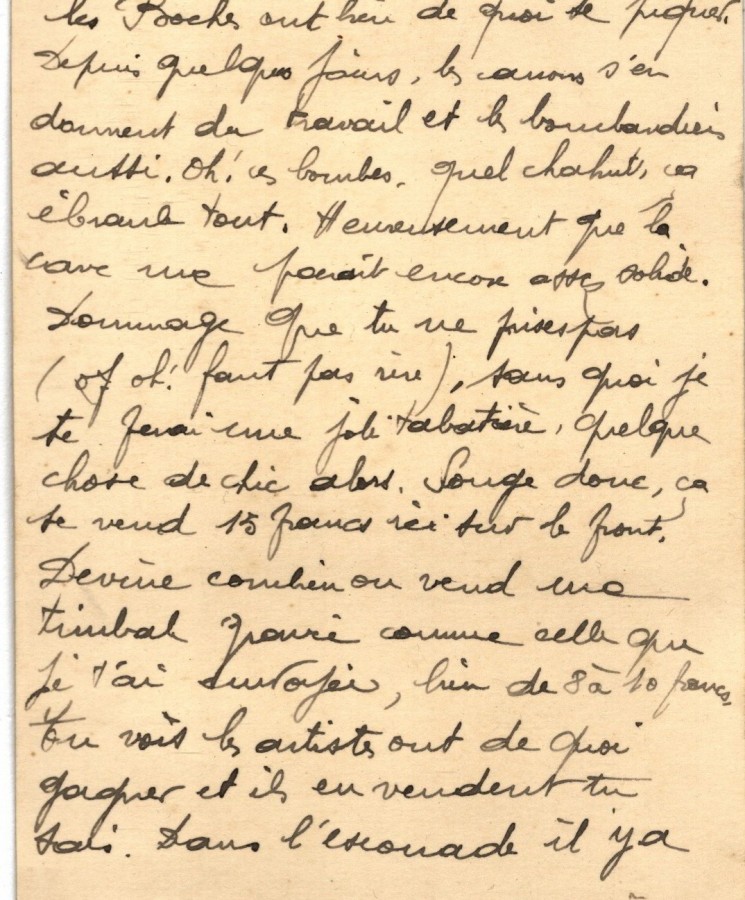 les Boches ont bien de quoi se piquer.
Depuis quelques jours, les canons s'en
donnent du travail et les bombardiers
aussi. Oh! ces bombes, quel chahut, ça
ébranle tout. Heureusement que la
cave me paraît encore assez solide.
Dommage que tu ne prises pas
(oh! faut pas rire), sans quoi je
te ferai une jolie tabatière, quelque
chose de chic alors. Songe donc, ça
se vend 15 francs ici sur le front.
Devine combien on vend une
timbale gravée comme celle que
je t'ai envoyée, bien de 8 à 10 francs,
tu vois les artistes ont de quoi
gagner et ils en vendent tu
sais. Dans l'escouade il y a